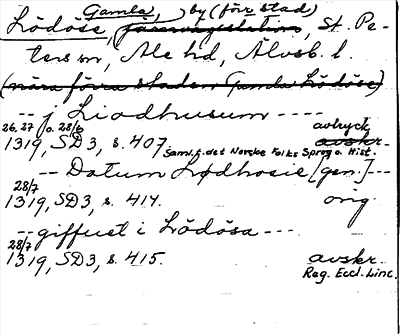 Gamla, by (för stad)
Lödöse, (järnvägsstation, St. Pe-
ters sn, Ale hd, Älvsb. l.
(nära förra staden Gamla Lödöse)
-- j Liodhusum ----
26, 27 o. 28/6 avtryck
1319, SD 3, s. 407. avskr.
Saml. t. det Norske Folks Sprog o. Hist.
-- Datum Lødhosie [gen.] ---
28/7
1319, SD 3, s. 414. orig.
-- giffuet i Lödösa ---
28/7
1319, SD 3, s. 415. avskr.
Reg. Eccl. Linc.